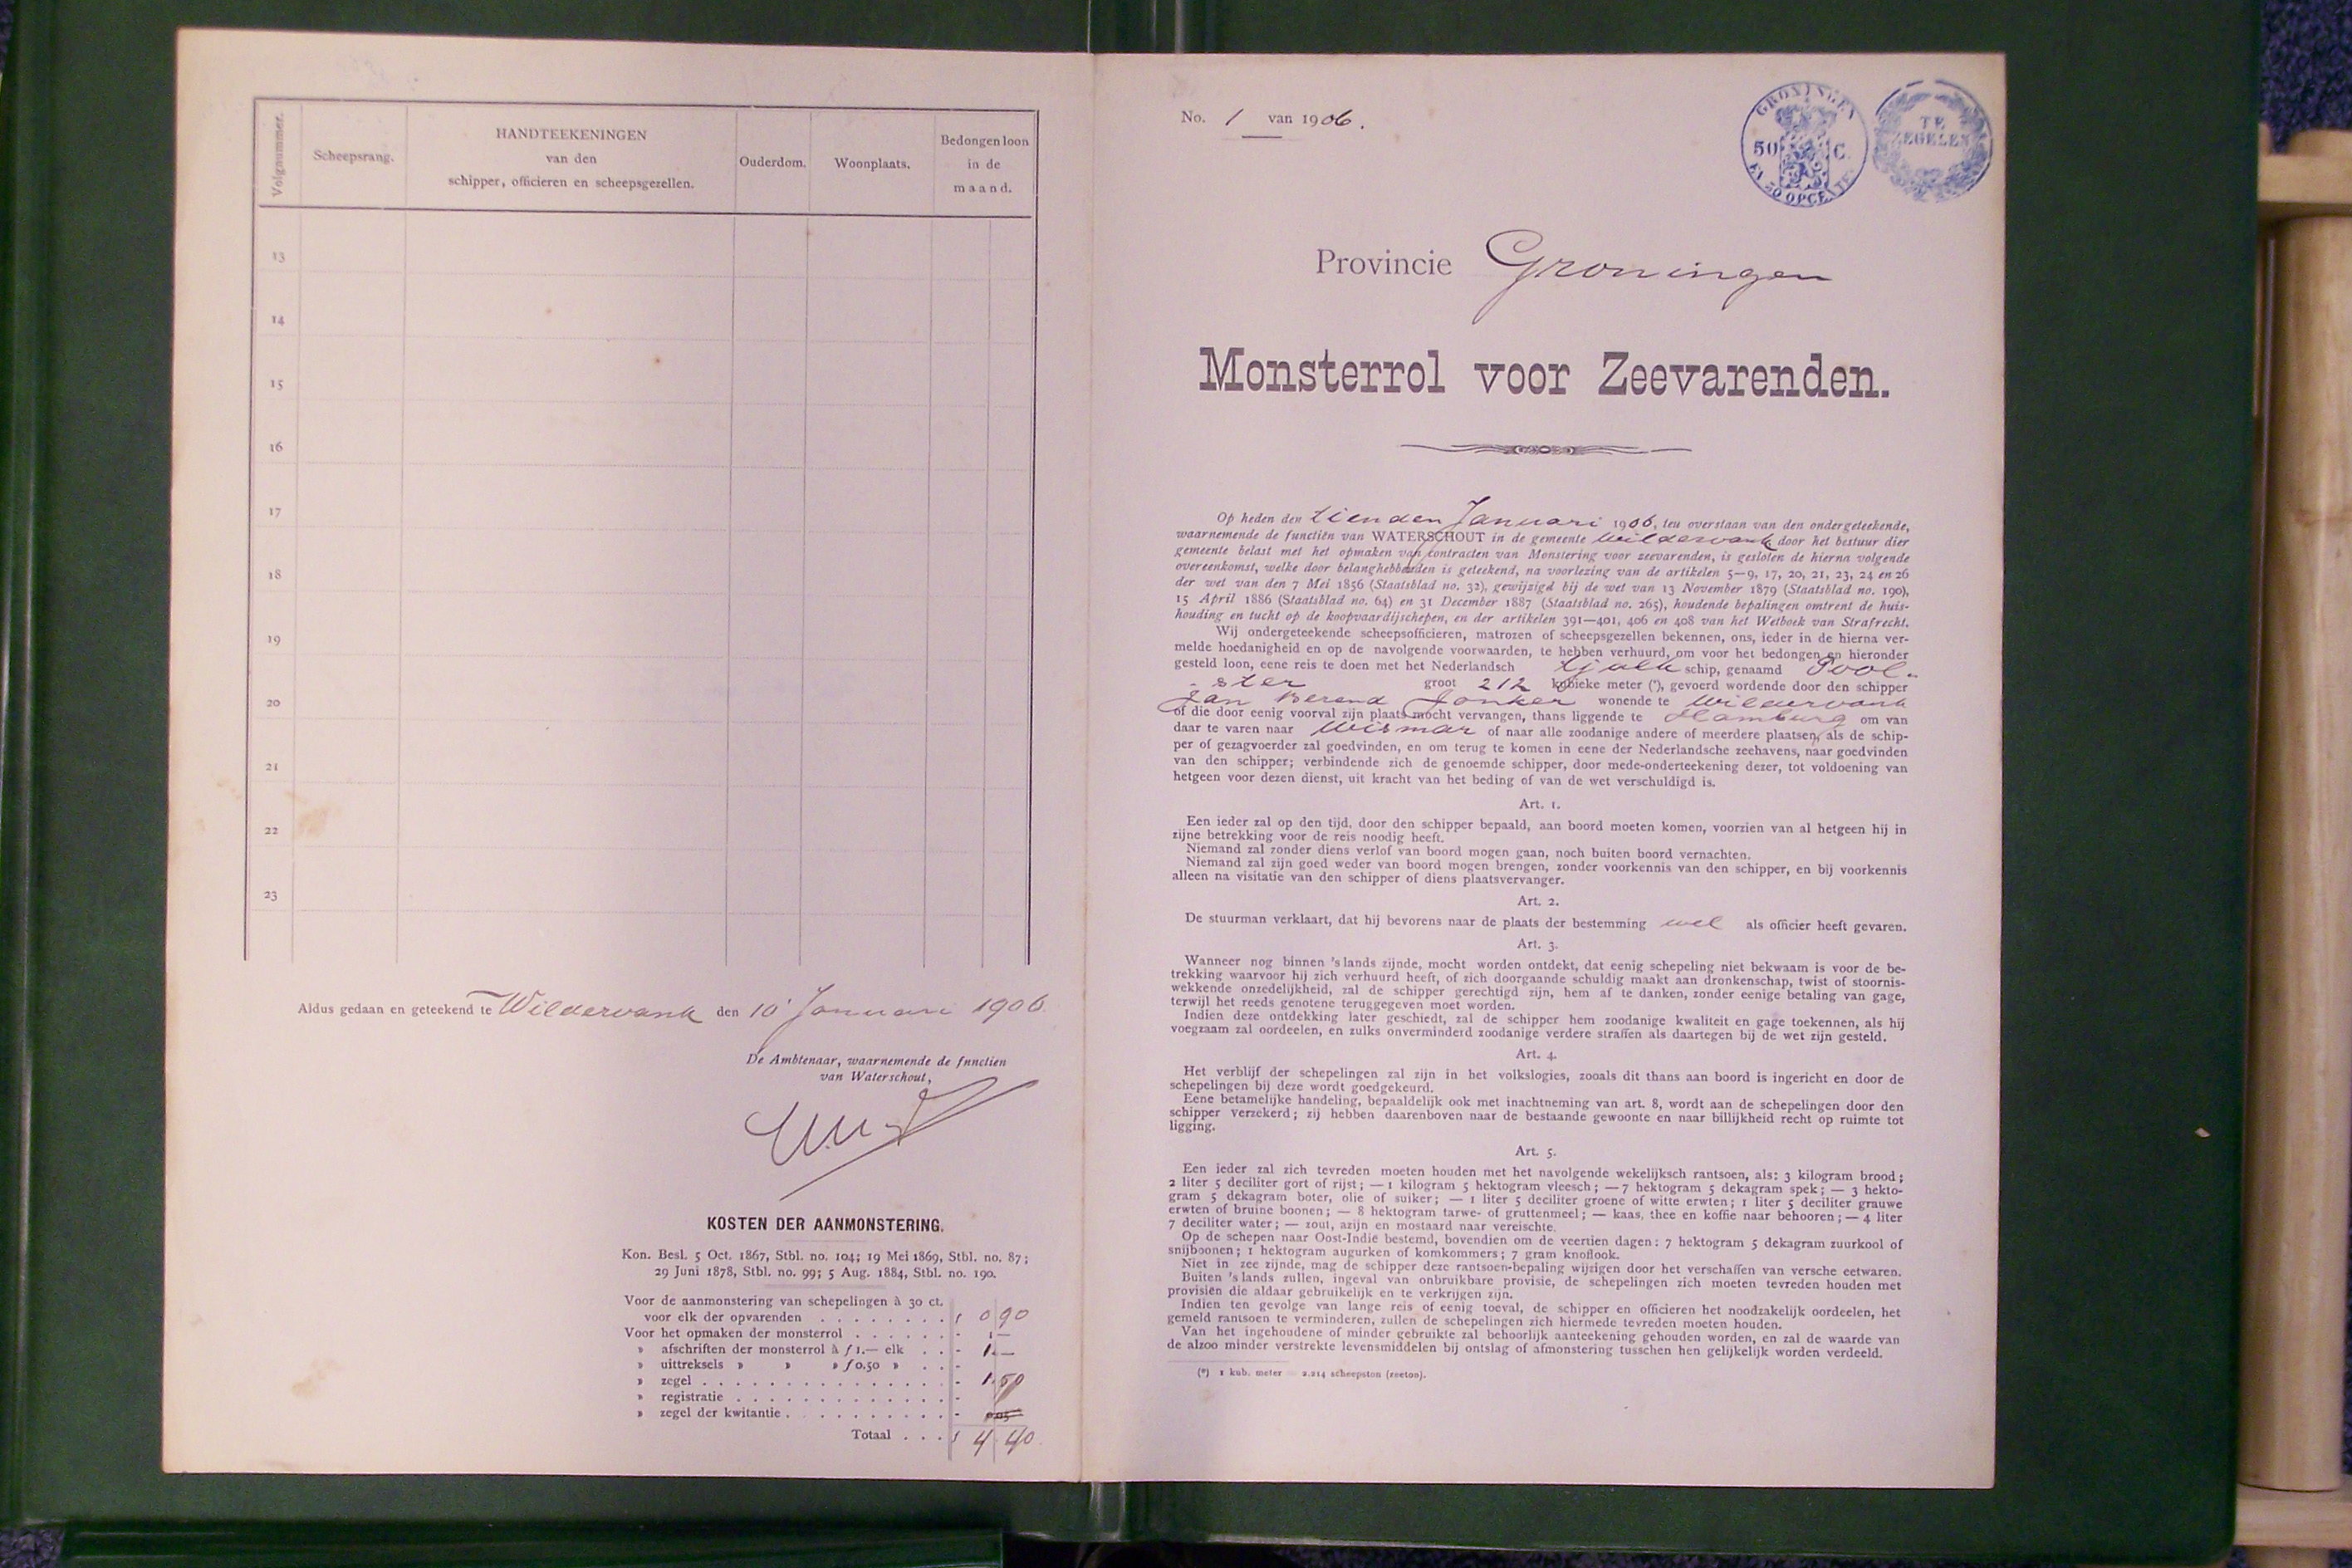 Volgnummer.
Scheepsrang.
HANDTEEKENINGEN
van den
schipper, officieren en scheepsgezellen.
Ouderdom.
Woonplaats.
Bedongen loon
in de
maand.
13
14
15
16
17
18
19
20
21
22
23
Aldus gedaan en geteekend te Wildervank den 10 Januari 1906
De Ambtenaar, waarnemende de fnnctien
van Waterschout,
KOSTEN DER AANMONSTERING.
Kon. Besl. 5 Oct. 1867, Stbl. no. 104; 19 Mei 1869, Stbl. no. 87;
29 Juni 1878, Stbl. no. 99; 5 Aug. 1884, Stbl. no. 190.
Voor de aanmonstering van schepelingen à 30 ct.
voor elk der opvarenden . . . . . . . . f 0 90
Voor het opmaken der monsterrol . . . . . . - 1 —
» afschriften der monsterrol à f 1.— elk . . - 1. —
» uittreksels » » » f 0,50 » . . -
» zegel . . . . . . . . . . . . . . . . - 1.50
» registratie . . . . . . . . . . . . . . -
» zegel der kwitantie . . . . . . . . . . -
Totaal . . . f 4 40
No. 1 van 1906.
GRONINGEN
50 C.
EN 50 OPCENTEN
TE
ZEGELEN
Provincie Groningen
Monsterrol voor Zeevarenden.
Op heden den tienden Januari 1906, ten overstaan van den ondergeteekende,
waarnemende de functiën van WATERSCHOUT in de gemeente Wildervank door het bestuur dier
gemeente belast met het opmaken van contracten van Monstering voor zeevarenden, is gesloten de hierna volgende
overeenkomst, welke door belanghebbenden is geteekend, na voorlezing van de artikelen 5—9, 17, 20, 21, 23, 24 en 26
der wet van den 7 Mei 1856 (Staatsblad no. 32), gewijzigd bij de wet van 13 November 1879 (Staatsblad no. 190),
15 April 1886 (Staatsblad no. 64) en 31 December 1887 (Staatsblad no. 265), houdende bepalingen omtrent de huis-
houding en tucht op de koopvaardijschepen, en der artikelen 391—401, 406 en 408 van het Wetboek van Strafrecht.
Wij ondergeteekende scheepsofficieren, matrozen of scheepsgezellen bekennen, ons, ieder in de hierna ver-
melde hoedanigheid en op de navolgende voorwaarden, te hebben verhuurd, om voor het bedongen en hieronder
gesteld loon, eene reis te doen met het Nederlandsch tjalk schip, genaamd Pool-
ster groot 212 kubieke meter (*), gevoerd wordende door den schipper
Jan Berend Jonker wonende te Wildervank
of die door eenig voorval zijn plaats mocht vervangen, thans liggende te Hamburg om van
daar te varen naar Wismar of naar alle zoodanige andere of meerdere plaatsen, als de schip-
per of gezagvoerder zal goedvinden, en om terug te komen in eene der Nederlandsche zeehavens, naar goedvinden
van den schipper; verbindende zich de genoemde schipper, door mede-onderteekening dezer, tot voldoening van
hetgeen voor dezen dienst, uit kracht van het beding of van de wet verschuldigd is.
Art. 1.
Een ieder zal op den tijd, door den schipper bepaald, aan boord moeten komen, voorzien van al hetgeen hij in
zijne betrekking voor de reis noodig heeft.
Niemand zal zonder diens verlof van boord mogen gaan, noch buiten boord vernachten.
Niemand zal zijn goed weder van boord mogen brengen, zonder voorkennis van den schipper, en bij voorkennis
alleen na visitatie van den schipper of diens plaatsvervanger.
Art. 2.
De stuurman verklaart, dat hij bevorens naar de plaats der bestemming wel als officier heeft gevaren.
Art. 3.
Wanneer nog binnen 's lands zijnde, mocht worden ontdekt, dat eenig schepeling niet bekwaam is voor de be-
trekking waarvoor hij zich verhuurd heeft, of zich doorgaande schuldig maakt aan dronkenschap, twist of stoornis-
wekkende onzedelijkheid, zal de schipper gerechtigd zijn, hem af te danken, zonder eenige betaling van gage,
terwijl het reeds genotene teruggegeven moet worden.
Indien deze ontdekking later geschiedt, zal de schipper hem zoodanige kwaliteit en gage toekennen, als hij
voegzaam zal oordeelen, en zulks onverminderd zoodanige verdere straffen als daartegen bij de wet zijn gesteld.
Art. 4.
Het verblijf der schepelingen zal zijn in het volkslogies, zooals dit thans aan boord is ingericht en door de
schepelingen bij deze wordt goedgekeurd.
Eene betamelijke handeling, bepaaldelijk ook met inachtneming van art. 8, wordt aan de schepelingen door den
schipper verzekerd; zij hebben daarenboven naar de bestaande gewoonte en naar billijkheid recht op ruimte tot
ligging.
Art. 5.
Een ieder zal zich tevreden moeten houden met het navolgende wekelijksch rantsoen, als: 3 kilogram brood;
2 liter 5 deciliter gort of rijst; — 1 kilogram 5 hektogram vleesch; — 7 hektogram 5 dekagram spek; — 3 hekto-
gram 5 dekagram boter, olie of suiker; — 1 liter 5 deciliter groene of witte erwten; 1 liter 5 deciliter grauwe
erwten of bruine boonen; — 8 hektogram tarwe- of gruttenmeel; — kaas, thee en koffie naar behooren; — 4 liter
7 deciliter water; — zout, azijn en mostaard naar vereischte.
Op de schepen naar Oost-Indië bestemd, bovendien om de veertien dagen: 7 hektogram 5 dekagram zuurkool of
snijboonen; 1 hektogram augurken of komkommers; 7 gram knoflook.
Niet in zee zijnde, mag de schipper deze rantsoen-bepaling wijzigen door het verschaffen van versche eetwaren.
Buiten 's lands zullen, ingeval van onbruikbare provisie, de schepelingen zich moeten tevreden houden met
provisiën die aldaar gebruikelijk en te verkrijgen zijn.
Indien ten gevolge van lange reis of eenig toeval, de schipper en officieren het noodzakelijk oordeelen, het
gemeld rantsoen te verminderen, zullen de schepelingen zich hiermede tevreden moeten houden.
Van het ingehoudene of minder gebruikte zal behoorlijk aanteekening gehouden worden, en zal de waarde van
de alzoo minder verstrekte levensmiddelen bij ontslag of afmonstering tusschen hen gelijkelijk worden verdeeld.
(*) 1 kub. meter = 2.214 scheepston (zeeton).